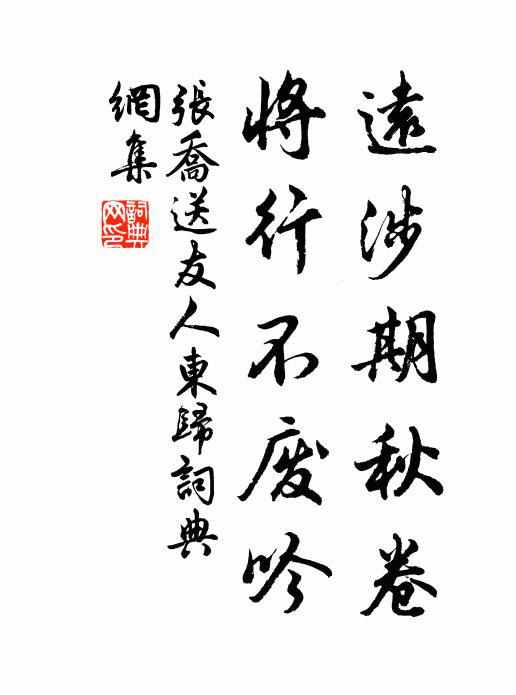 遠涉期秋卷
將行不废吟
張喬送友人東歸詞典
網集
詞典網印